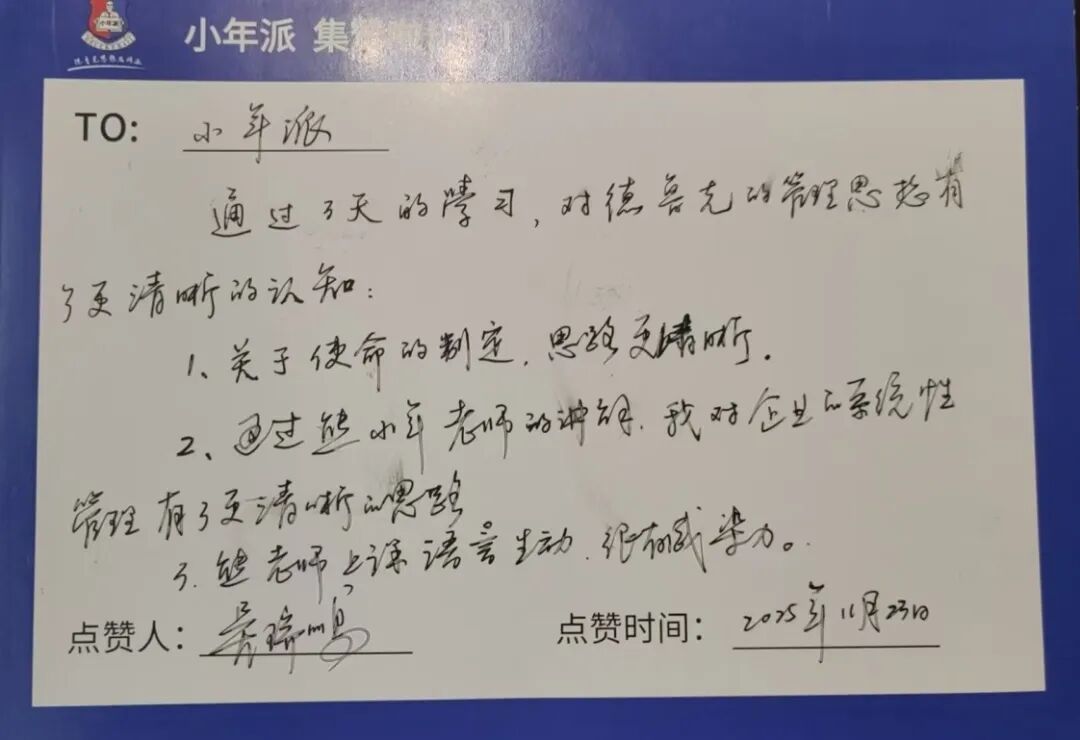 小年派
小年派 集
TO: 小年派
通过3天的学习，对德鲁克的管理思想有
了更清晰的认知：
1、关于使命的制定，思路更清晰。
2、通过熊小年老师的讲解，我对企业的系统性
管理有了更清晰的思路
3、熊老师上课语言生动，很有感染力。
点赞人：
点赞时间：2025年11月23日